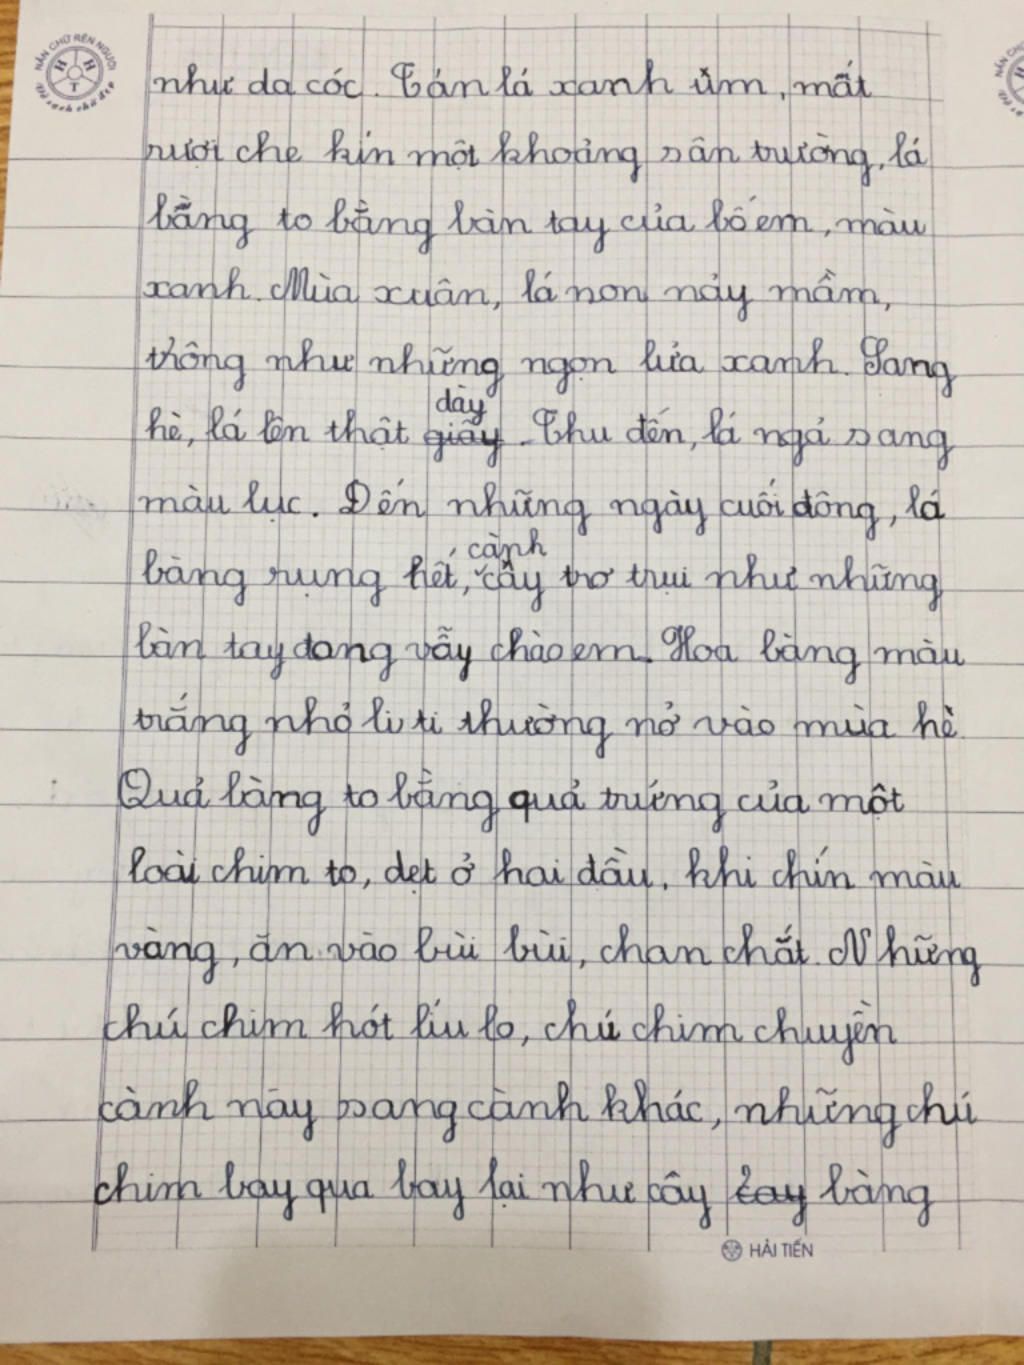 NẮN CHỮ RÈN NGƯỜI
H H T
như da cóc. Tán lá xanh ũm, mất
rượi che kín một khoảng sân trường, lá
bằng to bằng bàn tay của bố em, màu
xanh. Mùa xuân, lá non nảy mầm,
thông như những ngọn lửa xanh. Sang
dày
hè, lá lên thật giây. Thu đến, lá ngả sang
màu lục. Đến những ngày cuối đông, lá
cành
bàng rụng hết, cây trơ trụi như những
bàn tay dang vẫy chào em. Hoa bàng màu
trắng nhỏ li ti thường nở vào mùa hè.
Quả bàng to bằng quả trứng của một
loài chim to, dẹt ở hai đầu, khi chín màu
vàng, ăn vào bùi bùi, chan chắt. Những
chú chim hót líu lo, chú chim chuyền
cành này sang cành khác, những chú
chim bay qua bay lại như cây bàng
HẢI TIẾN